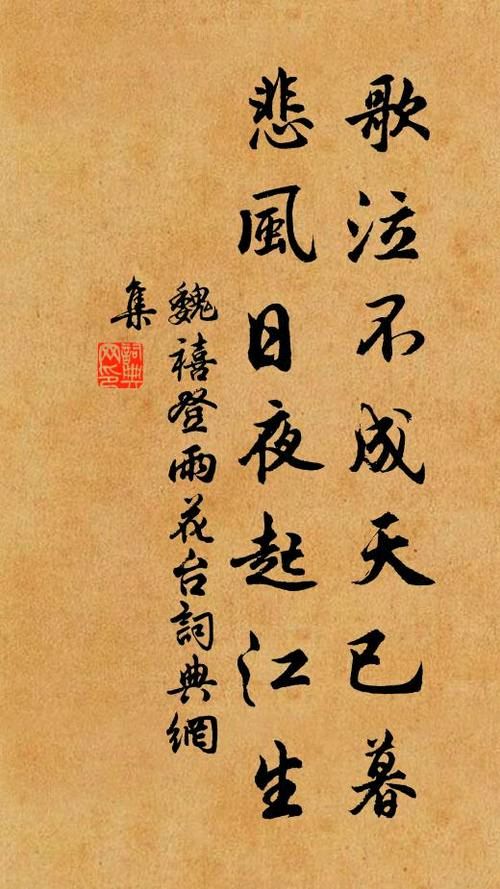 歌泣不成天已暮
悲風日夜起江生
魏禧登雨花台詞典網
集
詞典
网印